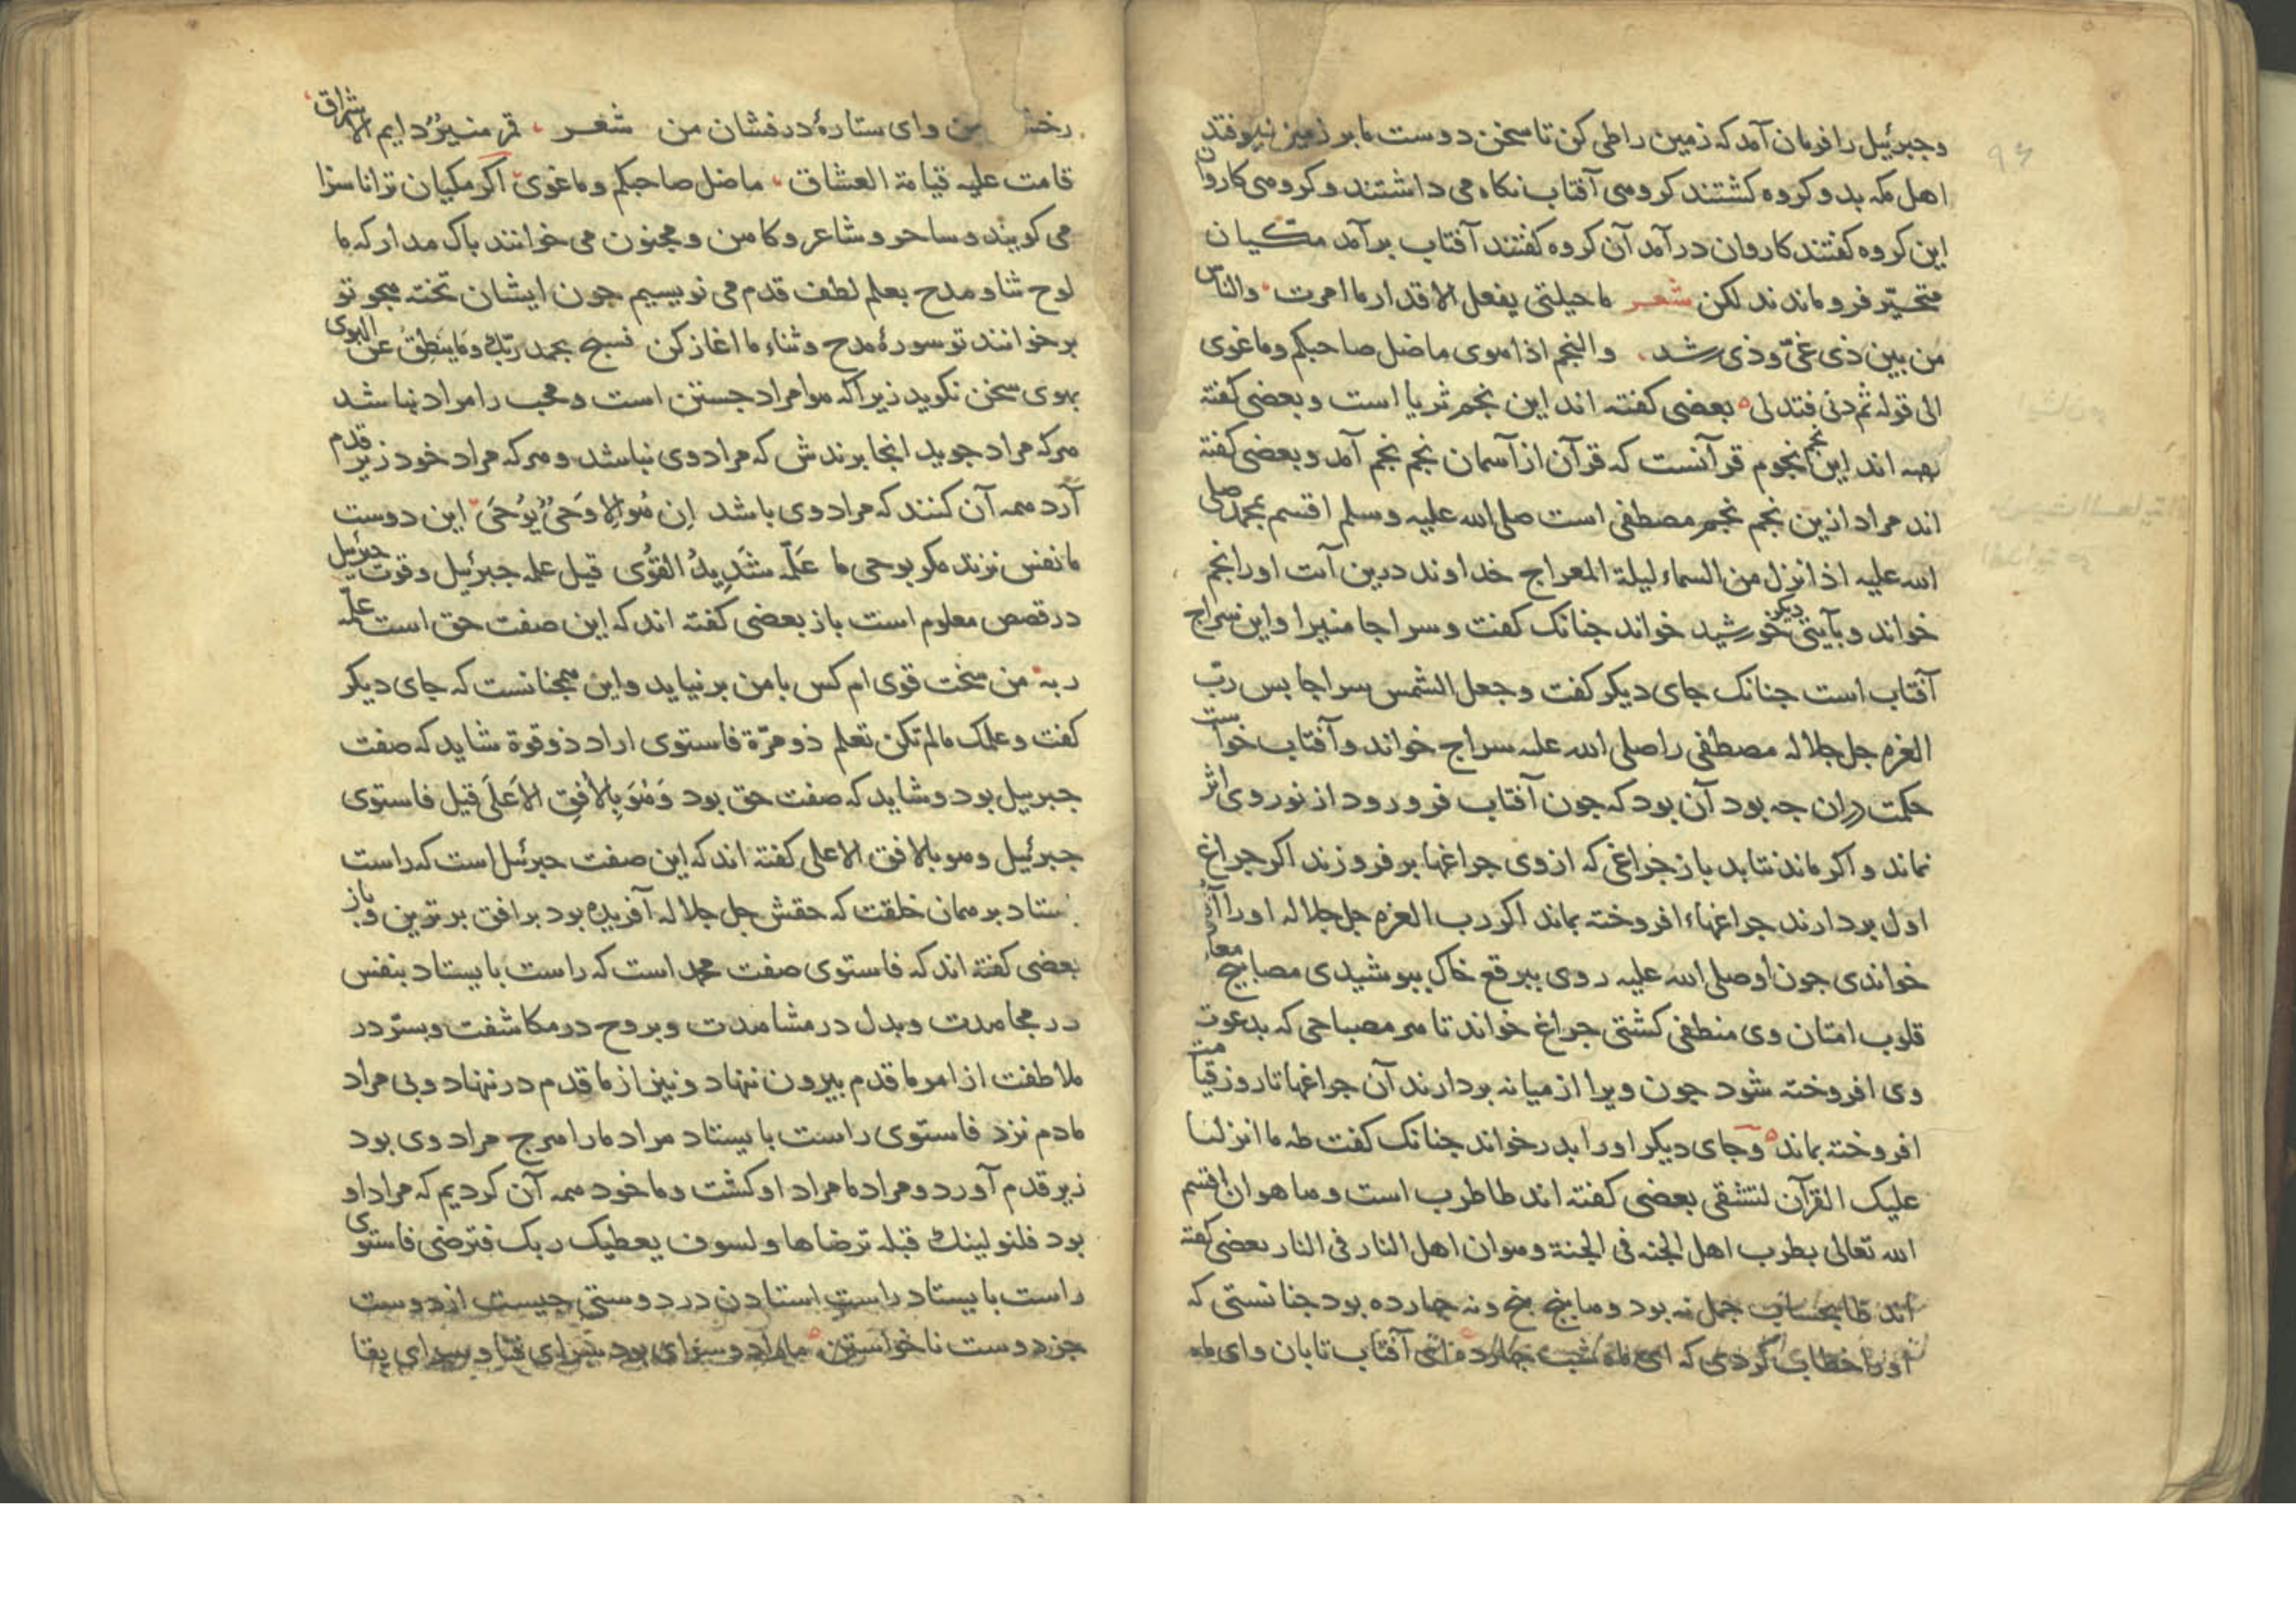 وجبرئیل را فرمان آمد که زمین را طی کن تا سخن دوست ما بر زمین نیوفتد
اهل مکه بدو کروه کشتند کروهی آفتاب نکاه می داشتند و کروهی کاروان
این کروه کفتند کاروان در آمد آن کروه کفتند آفتاب برآمد مکیان
متحیّر فرو ماندند لکن شعر ما حیلتی یفعل الاقدار ما امرت والناس
من بین ذی غیّ وذی رشد والنجم اذا هوی ماضل صاحبکم وماغوی
الی قوله ثم دنی فتدلی بعضی کفته اند این نجم ثریا است و بعضی کفته
اند این نجم نجوم قرآنست که قرآن از آسمان نجم نجم آمد و بعضی کفته
اند مراد ازین نجم نجم مصطفی است صلی الله علیه وسلم اقسم بمحمد صلی
الله علیه اذا نزل من السماء لیلة المعراج خداوند درین آیت او را نجم
خواند و بآیتی دیکر خورشید خواند جنانک کفت وسراجا منیرا و این سراج
آفتاب است جنانک جای دیکر کفت وجعل الشمس سراجا بس ربّ
العزه جل جلاله مصطفی را صلی الله علیه سراج خواند و آفتاب خواست
حکمت دران جه بود آن بود که جون آفتاب فرو رود از نور وی اثر
نماند و اکر ماند نتابد باز جراغی که از وی جراغها بر فروزند اکر جراغ
اول بردارند جراغهاء افروخته بماند اکر رب العزه جل جلاله او را
خواندی جون او صلی الله علیه روی ببرقع خاک ببوشیدی مصابیح
قلوب امتان وی منطفی کشتی جراغ خواند تا هر مصباحی که بدعوت
وی افروخته شود جون ویرا از میانه بردارند آن جراغها تا روز قیامت
افروخته بماند و جای دیکر او را بدر خواند جنانک کفت طه ما انزلنا
علیک القرآن لتشقی بعضی کفته اند طا طرب است وها هوان اقسم
الله تعالی بطرب اهل الجنه فی الجنة وهوان اهل النار فی النار بعضی کفته
اند طا بحساب جمل نه بود وها پنج پنج و نه جهارده بود جنانستی که
او را خطاب کردی که ای ماه شب جهارده ای آفتاب تابان و ای ماه
من و ای ستارۀ درفشان من شعر قمر منیر دایم الاشراق
قامت علیه قیامة العشاق ماضل صاحبکم وماغوی اکر مکیان ترا ناسزا
می کویند و ساحر و شاعر و کاهن و مجنون می خوانند باک مدار که ما
لوح ثنا و مدح بعلم لطف قدم می نویسیم جون ایشان تخته هجو تو
بر خوانند تو سورۀ مدح و ثناء ما اغاز کن فسبح بحمد ربک وَمَا یَنطِقُ عن الهوی
بهوی سخن نکوید زیرا که هوا مراد جستن است و محب را مراد نباشد
هرکه مراد جوید انجا برندش که مراد وی نباشد و هرکه مراد خود زیر قدم
آرد همه آن کنند که مراد وی باشد اِن هُوَ الا وَحیٌ یُوحَی این دوست
ما نفس نزند مکر بوحی ما عَلَّمَه شَدِیدُ القُوَی قیل علمه جبرئیل وقوت جبرئیل
در قصص معلوم است باز بعضی کفته اند که این صفت حق است علّمه
ربه من سخت قوی ام کس با من بر نیاید و این همجنانست که جای دیکر
کفت وعلمک مالم تکن تعلم ذو مرّة فاستوی اراد ذو قوة شاید که صفت
جبرییل بود و شاید که صفت حق بود وَهُوَ بِالاُفقِ الاَعلَی قیل فاستوی
جبرئیل وهو بالافق الاعلی کفته اند که این صفت جبرئیل است که راست
بستاد بر همان خلقت که حقش جل جلاله آفریده بود بر افق برترین و باز
بعضی کفته اند که فاستوی صفت محمد است که راست بایستاد بنفس
در مجاهدت و بدل در مشاهدت و بروح در مکاشفت و بسرّ در
ملاطفت از امر ما قدم بیرون ننهاد و نیز از ما قدم در ننهاد و بی مراد
ما دم نزد فاستوی راست بایستاد مراد ما را هرج مراد وی بود
زیر قدم آورد و مراد ما مراد او کشت و ما خود همه آن کردیم که مراد او
بود فلنولینک قبلة ترضاها ولسوف یعطیک ربک فترضی فاستوی
راست بایستاد راست استادن در دوستی جیست از دوست
جز دوست ناخواستن